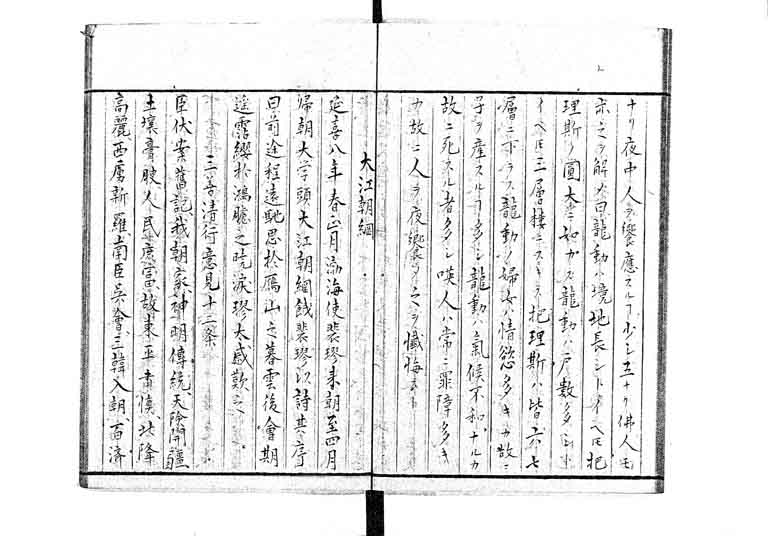 ナリ夜中人ヲ饗應スルヿ少シ五ナリ佛人モ
亦之ヲ解〆曰龍動ハ境地長シトイヘ𪜈把
理斯ノ圓大ニ如カズ龍動ハ戸數多シ
イヘ𪜈三層樓ニスキス把理斯ハ皆六七
層ニ下ラス龍動ノ婦女ハ情慾多キカ故ニ
子ヲ産スルヿ多シ龍動ハ氣候不和ナルカ
故ニ死スル者多シ暎人ハ常ニ罪障多キ
カ故ニ人ヲ夜饗シ之ヲ懺悔スト
大江朝綱
延喜八年春正月渤海使裴璆来朝至四月
歸朝大学頭大江朝綱餞裴璆以詩其序
曰前途程遠馳思於鴈山之暮雲後會期
遥霑纓於鴻臚之暁涙璆太感歎之
三善清行意見十二条
臣伏案舊記我朝家神明傳統天險開疆
土壤膏腴人民庶富故東平肅慎北降
高麗西虜新羅南臣呉會三韓入朝百済